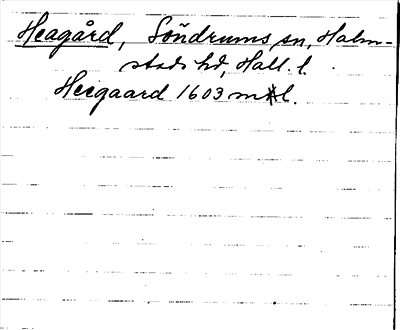 Heagård, Söndrums sn, Halm-
stads hd, Hall. l.
Heegaard 1603 mkl.